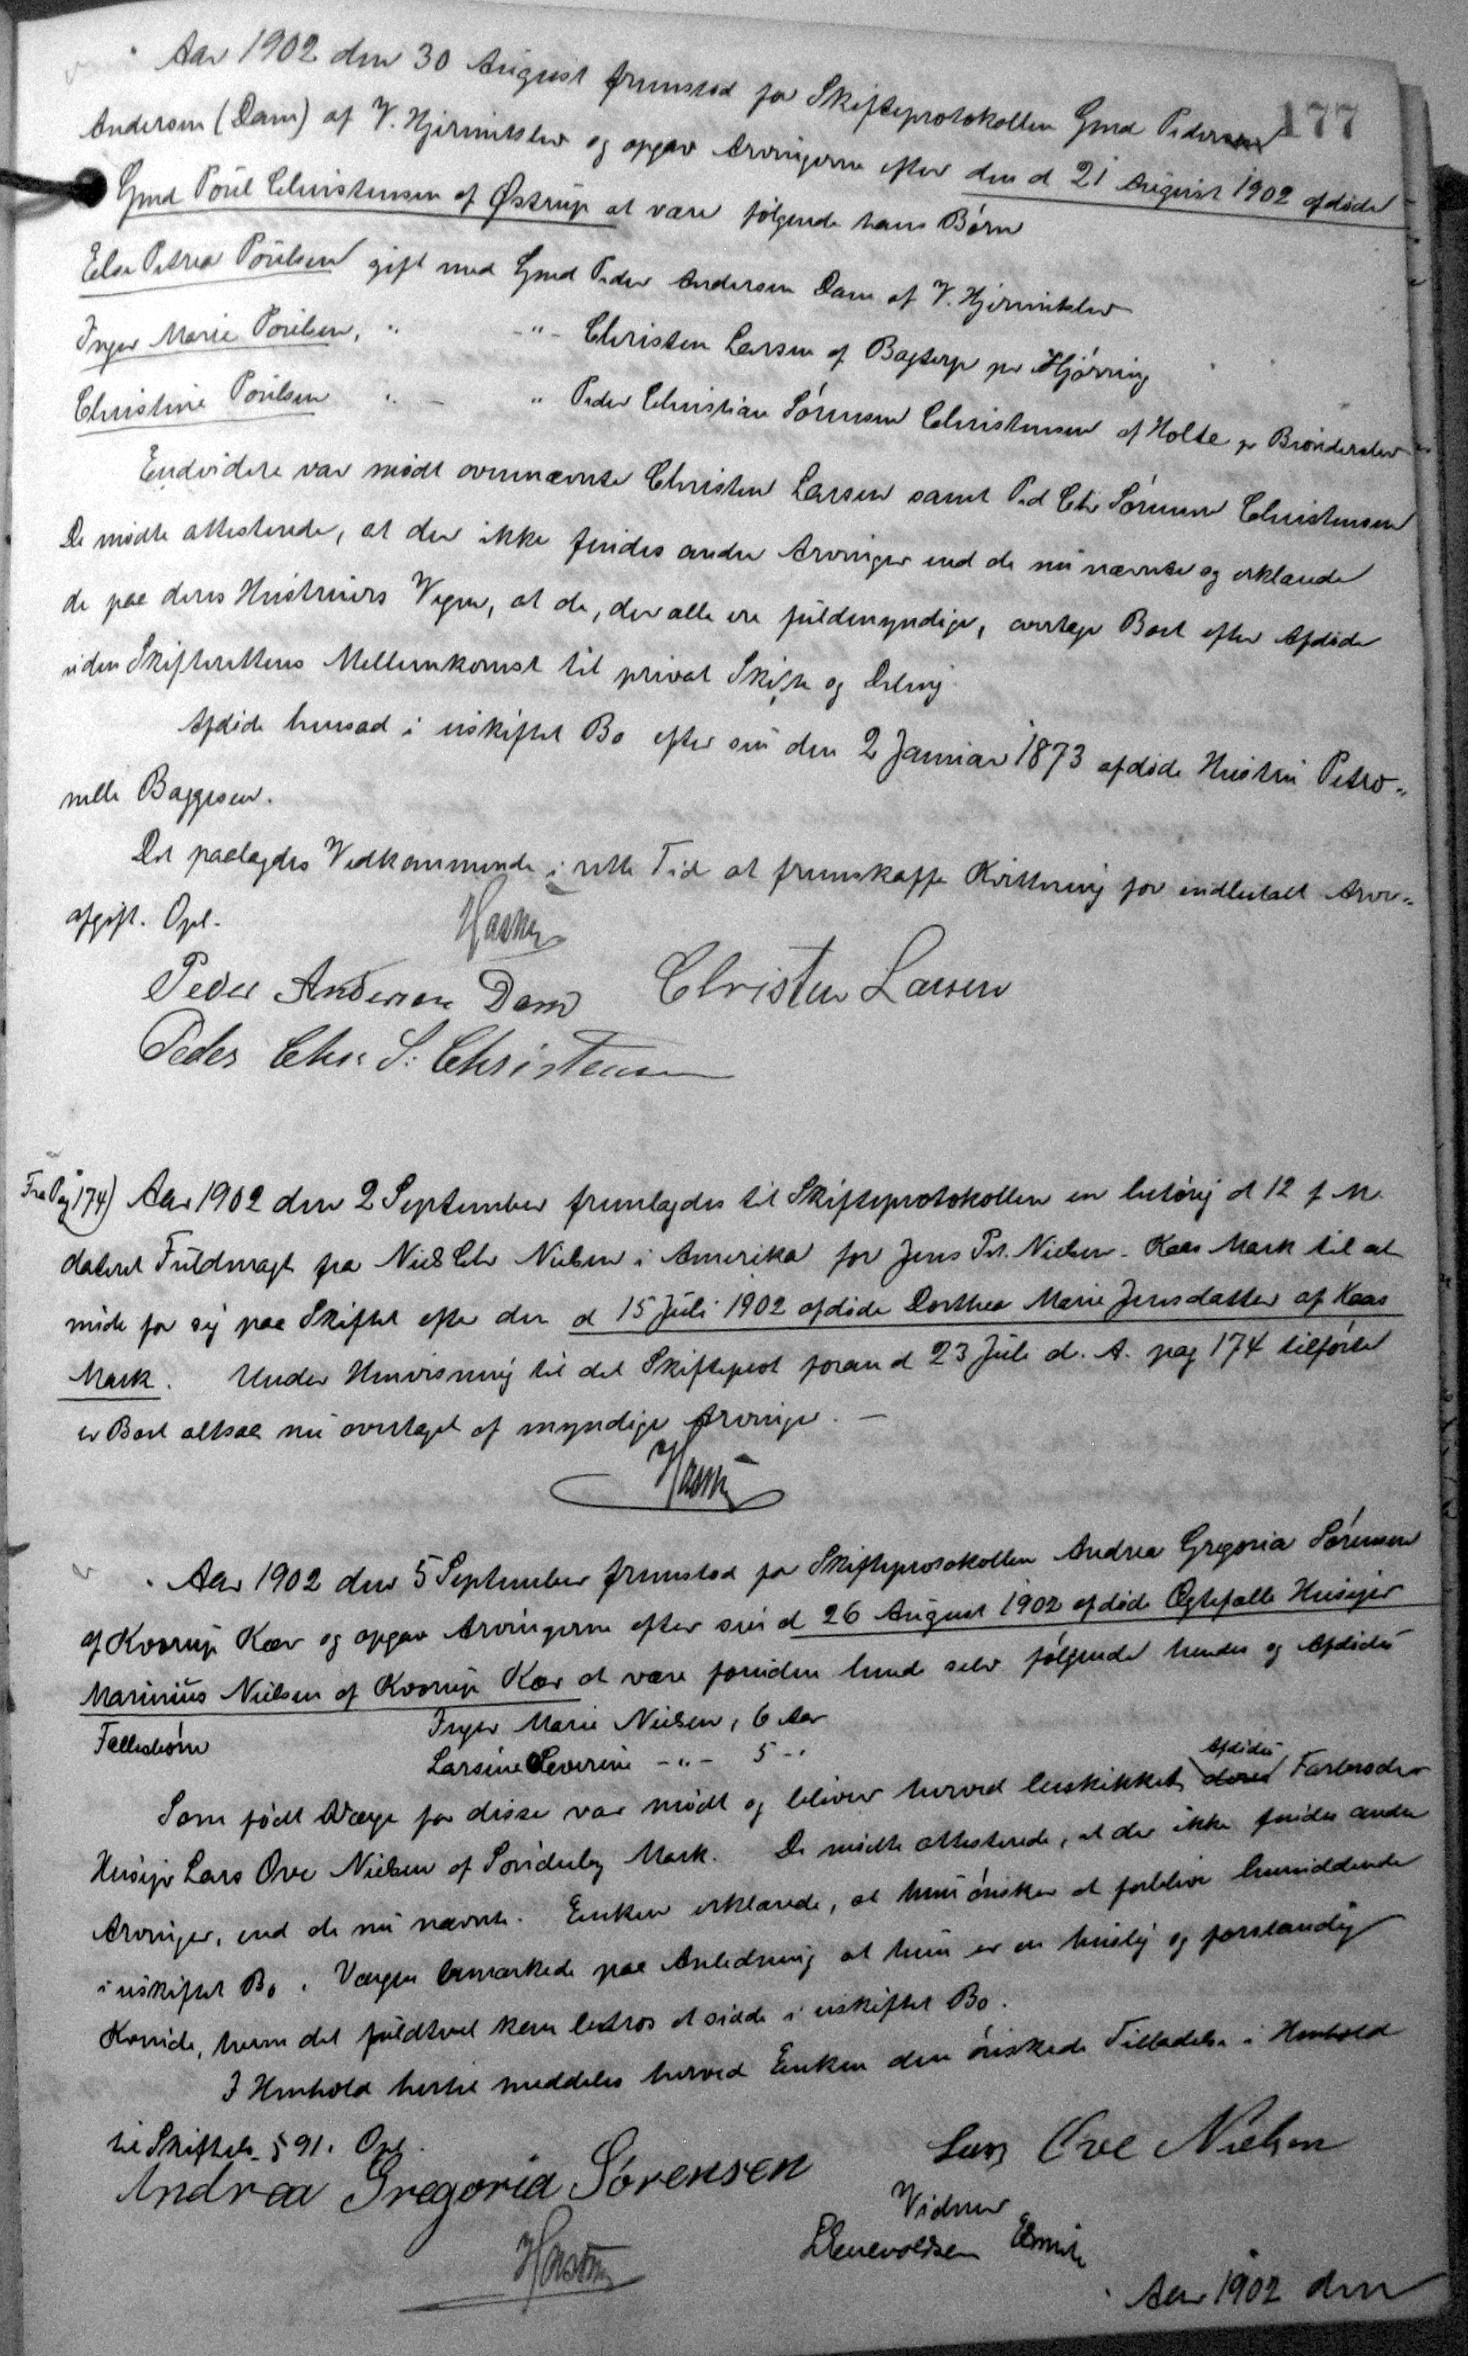 177
Aar 1902 den 30 August fremstod for Skifteprotokollen Gmd Peder
Andersen (Dam) af V. Hjermitslev og opgav Arvingerne efter den d 21 August 1902 afdøde
Gmd Poul Christensen af Østrup at være følgende hans Børn
Else Petrea Poulsen gift med Gmd Peder Andersen Dam af V. Hjermitslev
Inger Marie Poulsen, " -"- Christen Larsen af Bagterp pr Hjørring
Christine Poulsen " - " Peder Christian Sørensen Christensen af Holte pr Brønderslev
Endvidere var mødt ovennævnte Christen Larsen samt Ped Chr Sørensen Christensen
De mødte attesterede, at der ikke findes andre Arvinger end de nu nævnte og erklærede
de paa deres Hustruers Vegne, at de, der alle ere fuldmyndige, overtage Boet efter Afdøde
uden Skifterettens Mellemkomst til privat Skifte og Deling
Afdøde hensad i uskiftet Bo efter sin den 2 Januar 1873 afdøde Hustru Petro-
nelle Baggesen.
Det paalagdes Vedkommende i rette Tid at fremskaffe Kvittering for indbetalt Arve-
afgift. Opl.
Peder Andersen Dam Christen Larsen
Peder Chr. S. Christensen
Fra Pag 174) Aar 1902 den 2 September fremlagdes til Skifteprotokollen en behørig d 12 f M.
dateret Fuldmagt fra Niels Chr Nielsen i Amerika for Jens Pet. Nielsen - Kaas Mark til at
møde for sig paa Skiftet efter den d 15 Juli 1902 afdøde Dorthea Marie Jensdatter af Kaas
Mark. Under Henvisning til det Skifteprot foran d 23 Juli d. A. pag 174 tilførte
er Boet altsaa nu overtaget af myndige Arvinger. -
Aar 1902 den 5 September fremstod for Skifteprotokollen Andrea Gregoria Sørensen
af Kvorup Kær og opgav Arvingerne efter sin d 26 August 1902 afdøde Ægtefælle Husejer
Marinus Nielsen af Kvorup Kær at være foruden hende selv følgende hendes og Afdødes
Fællesbørn Inger Marie Nielsen, 6 Aar
Larsine Severine -"- 5 -"
Som født Værge for disse var mødt og bliver herved beskikket Afdødes deres Farbroder
Husejer Lars Ove Nielsen af Sønderby Mark. De mødte attesterede, at der ikke findes andre
Arvinger, end de nu nævnte. Enken erklærede, at hun ønsker at forblive hensiddende
i uskiftet Bo. Værgen bemærkede paa Anledning at hun er en huslig og forstandig
Kvinde, hvem det fuldtvel kan betros at sidde i uskiftet Bo.
I Henhold hertil meddeles herved Enken den ønskede Tilladelse i Henhold
til Skiftels. § 91. Opl.
Andrea Gregoria Sørensen Lars Ove Nielsen
Vidner
Aar 1902 den